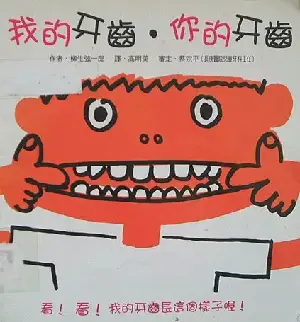 我的牙齒・你的牙齒
作者・柳生弦一郎 譯・高明美 審定・
看！看！我的牙齒長這個樣子喔！